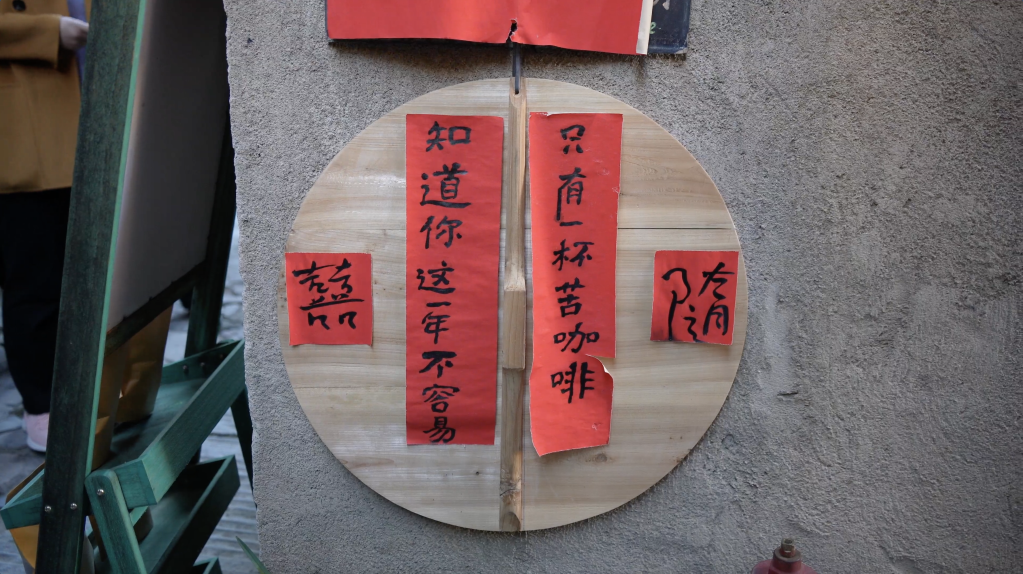 囍
知道你这一年不容易
只有一杯苦咖啡
随